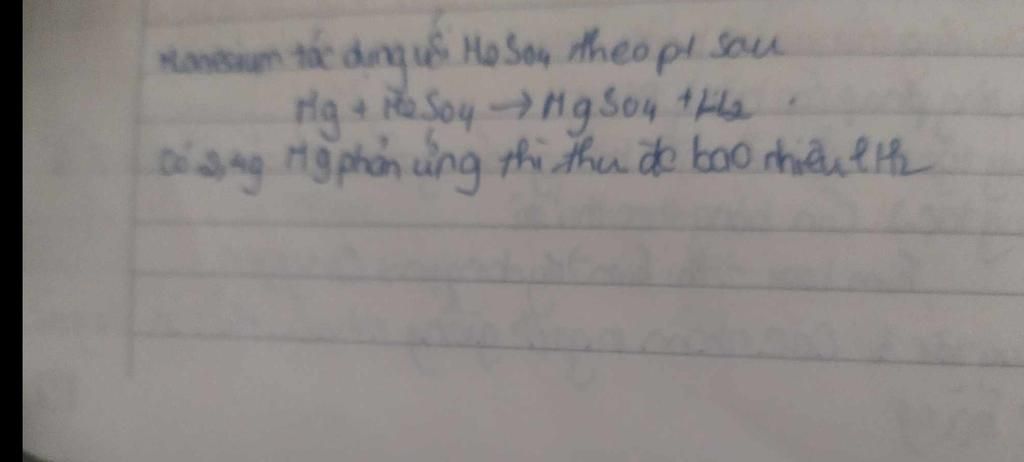 tác dụng với H2SO4 theo pt sau
Mg + H2SO4 → MgSO4 + H2
Có Mg phản ứng thì thu đc bao nhiêu l H2